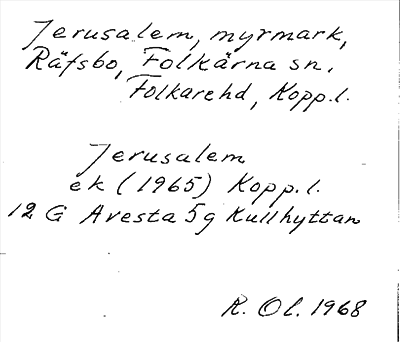 Jerusalem, myrmark,
Räfsbo, Folkärna sn.
Folkare hd, Kopp.l.
Jerusalem
ek (1965) Kopp.l.
12 G Avesta 5g Kullhyttan
R. Ol. 1968